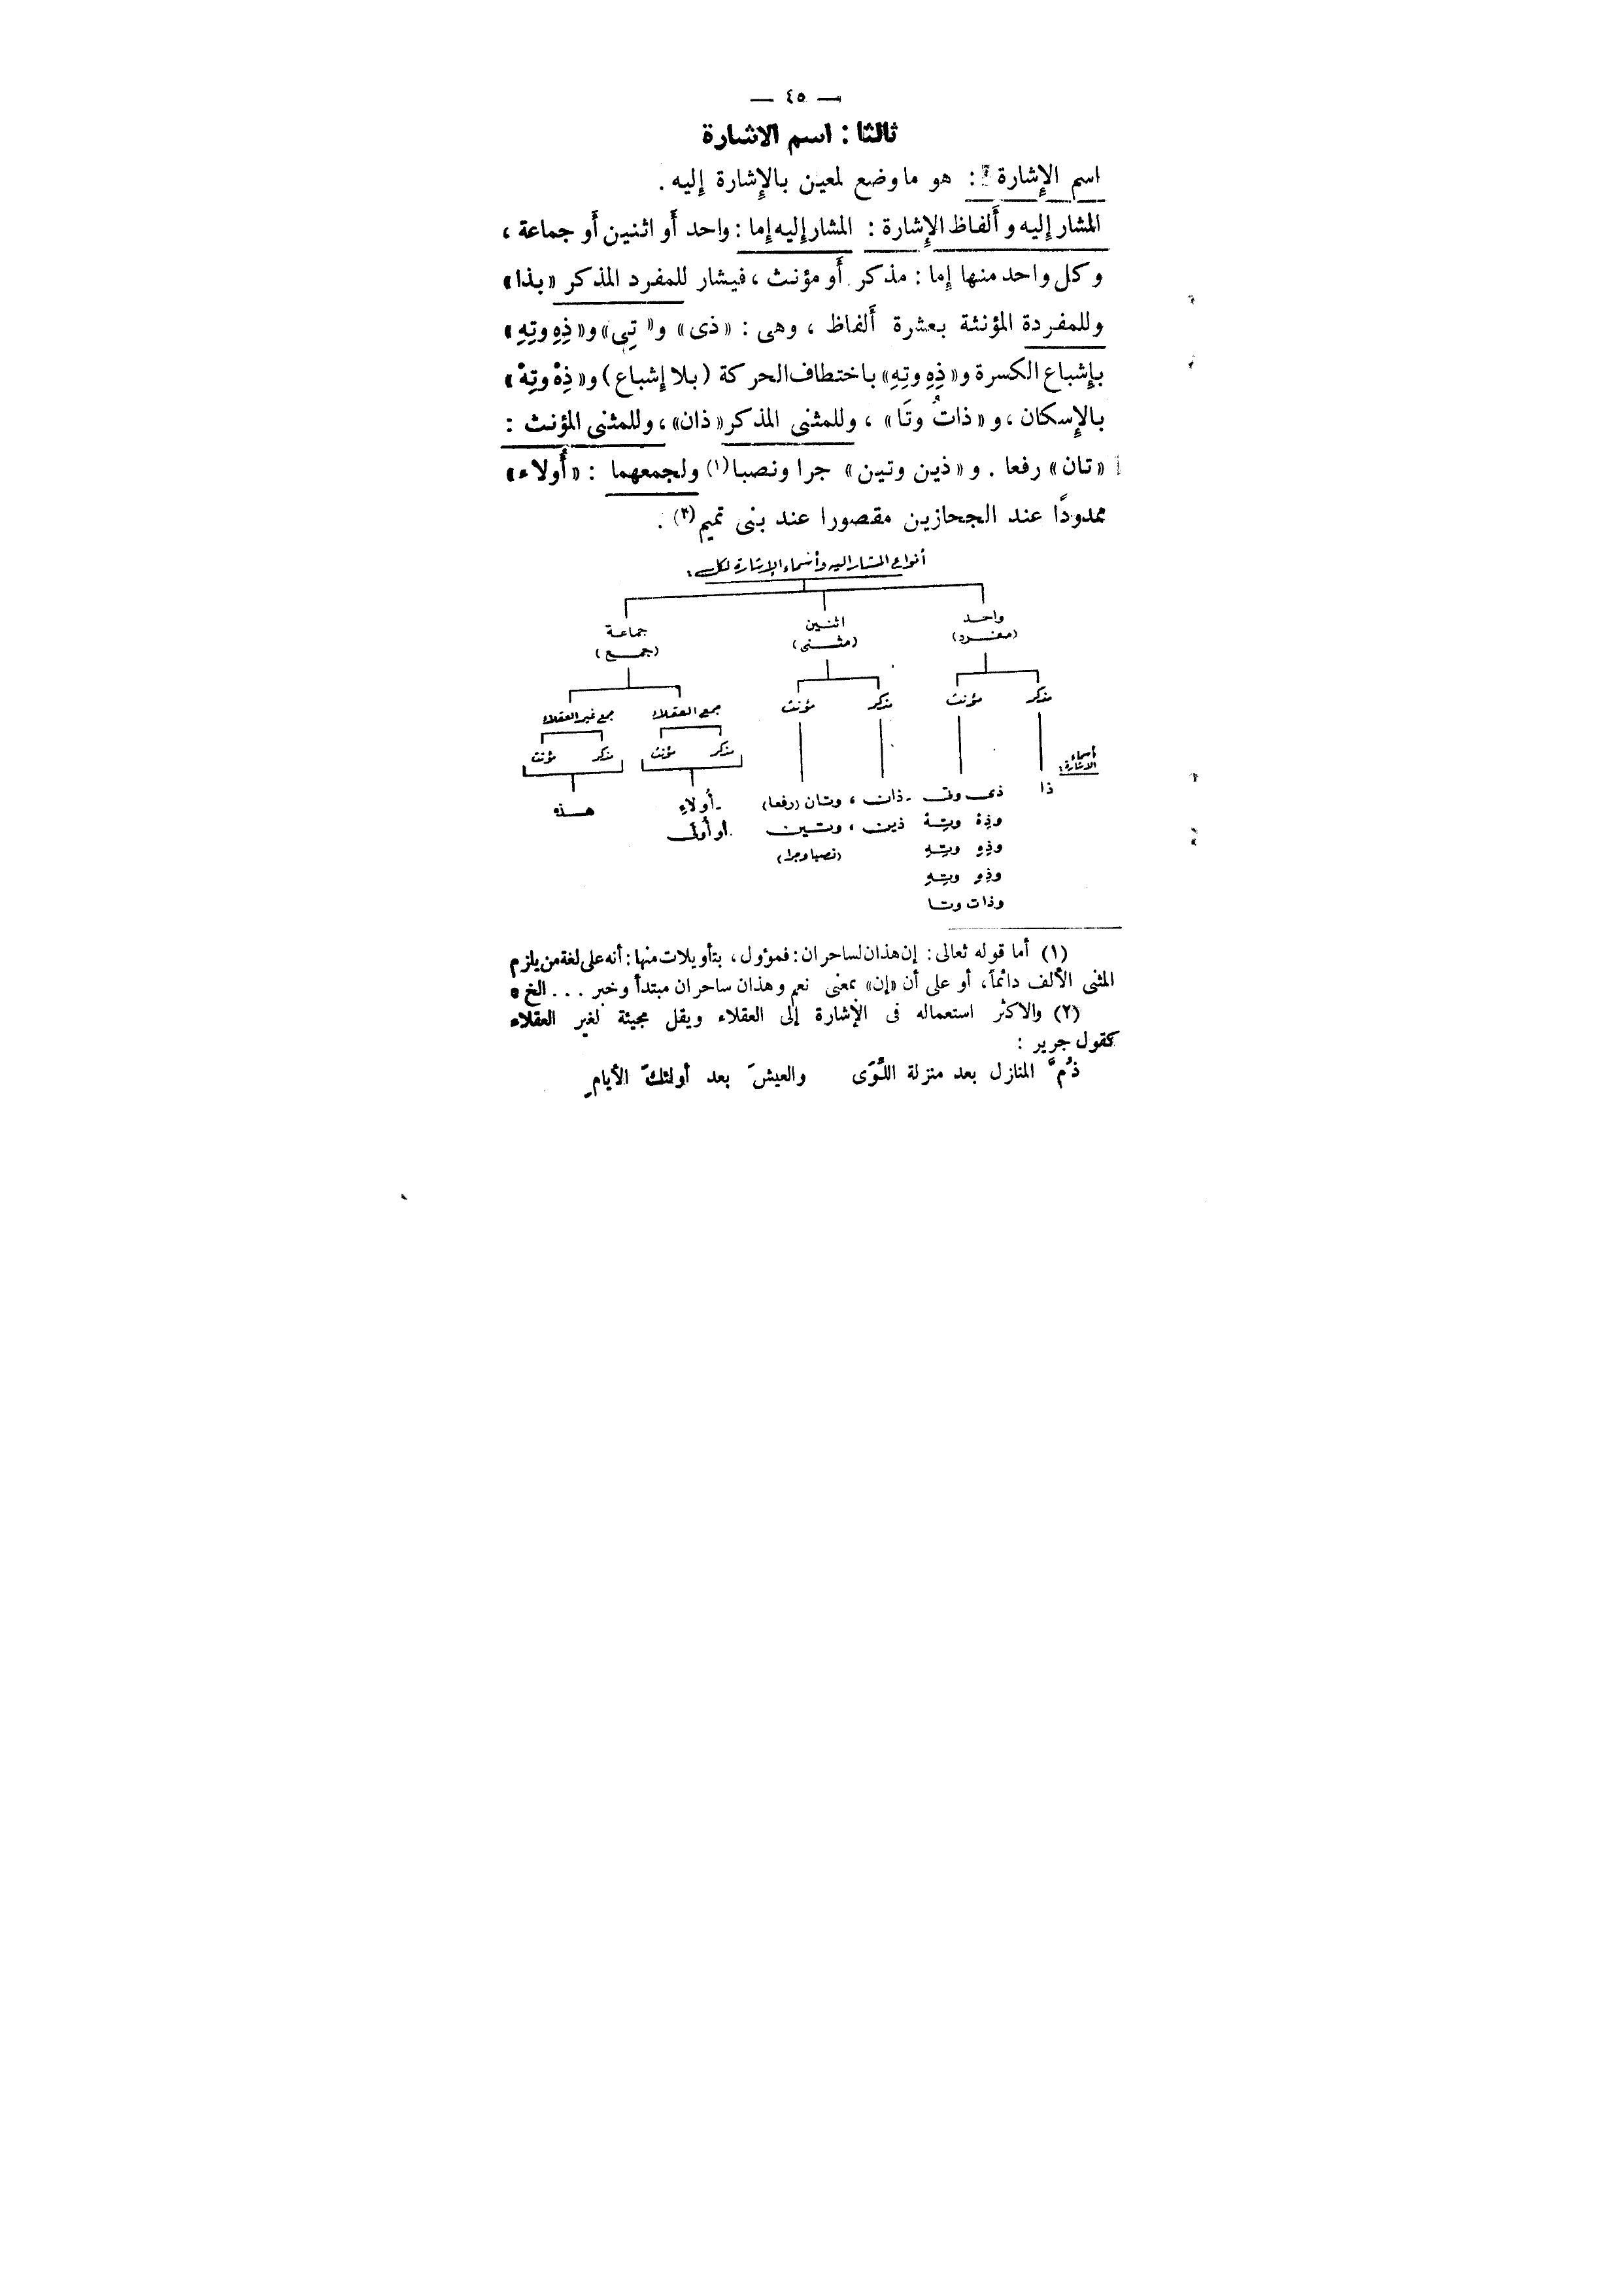 — ٤٥ —
ثالثا : اسم الاشارة
اسم الإشارة : هو ما وضع لمعين بالإشارة إليه .
المشار إليه وألفاظ الإشارة : المشار إليه إما : واحد أو اثنين أو جماعة ،
وكل واحد منها إما : مذكر أو مؤنث ، فيشار للمفرد المذكر «بذا»
وللمفردة المؤنثة بعشرة ألفاظ ، وهى : «ذى» و« تِي» و« ذِهِ وتِهِ»
بإشباع الكسرة و«ذِهِ وتِهِ» باختطاف الحركة (بلا إشباع) و« ذِهْ وتِهْ»
بالإسكان ، و « ذاتُ وتَا » ، وللمثنى المذكر «ذان» ، وللمثنى المؤنث :
«تان» رفعا . و «ذين وتين» جرا ونصبا (١) ولجمعهما : «أُولاء»
ممدودًا عند الجحازين مقصورا عند بنى تميم (٢) .
أنواع المشار اليه وأسماء الإشارة لكل :
واحد اثنين جماعة
(مفرد) (مثنى) (جمع)
مذكر مؤنث مذكر مؤنث جمع العقلاء جمع غير العقلاء
مذكر مؤنث مذكر مؤنث
أسماء الاشارة :
ذا ذى وتى - ذان ، وتان (رفعا) - أُولاءِ هذه
وذِهْ وتِهْ ذين ، وتين - أو أُولَى
وذِهِ وتِهِ (نصبا وجرا)
وذِهِ وتِهِ
وذات وتا
(١) أما قوله تعالى : إن هذان لساحران : فمؤول ، بتأويلات منها : أنه على لغة من يلزم
المثنى الألف دائماً ، أو على أن «إن» بمعنى نعم وهذان ساحران مبتدأ وخبر ... الخ
(٢) والاكثر استعماله فى الإشارة إلى العقلاء ويقل مجيئة لغير العقلاء
كقول جرير :
ذُمَّ المنازل بعد منزلة اللَّوَى والعيشَ بعد أولئكَ الأيامِ